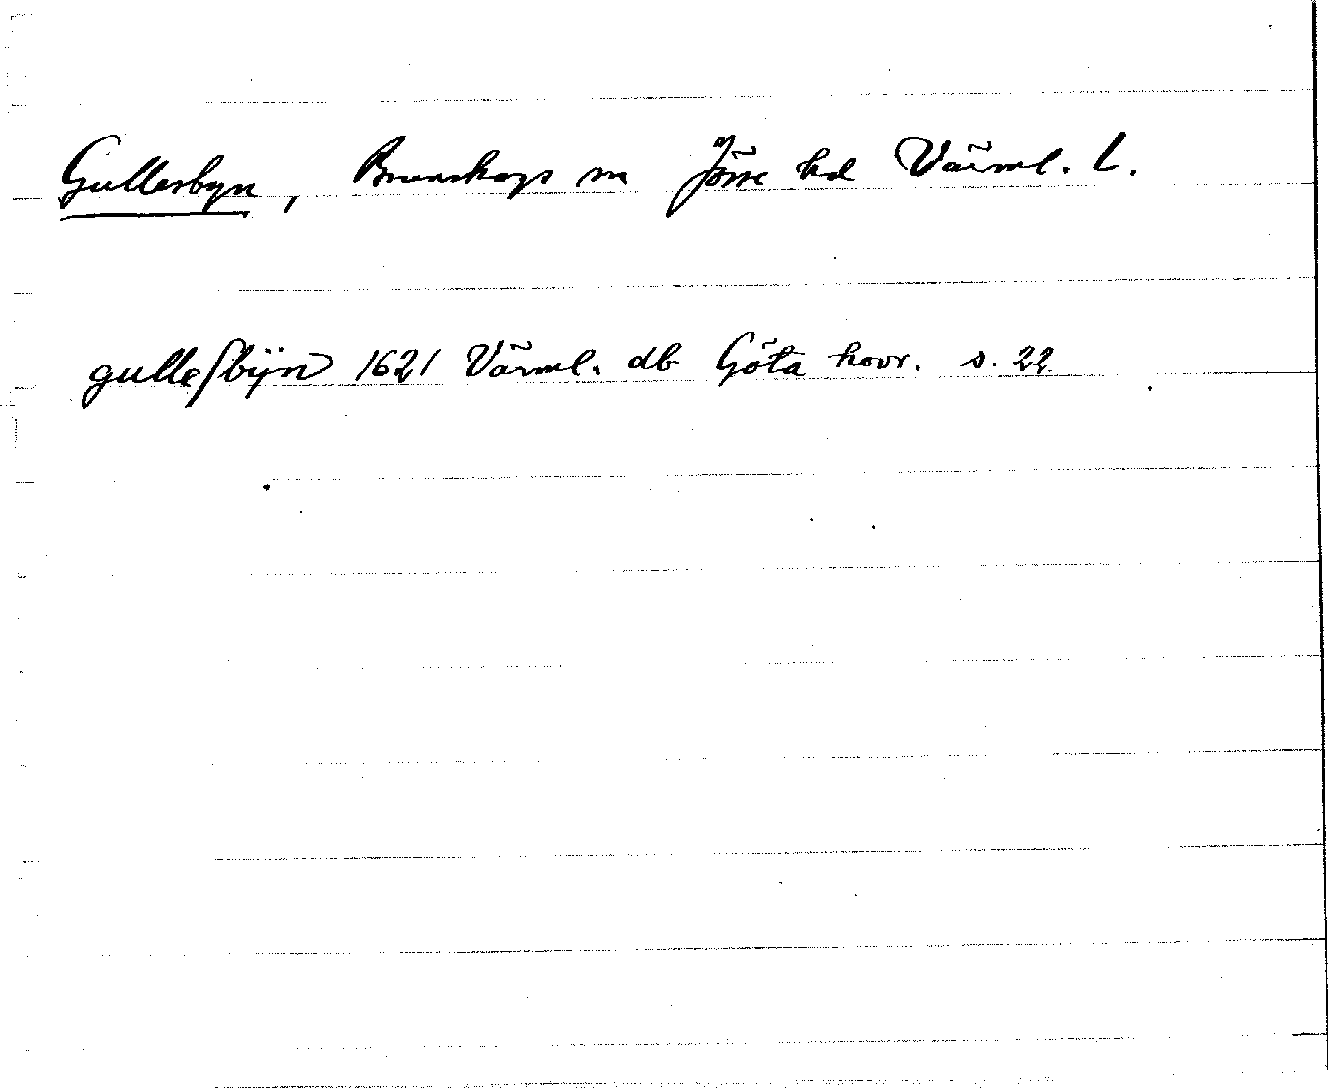 Gullersbyn, Brunskogs sn Jösse hd Värml. L.
gulleſbÿn 1621 Värml. db Göta hovr. s. 22